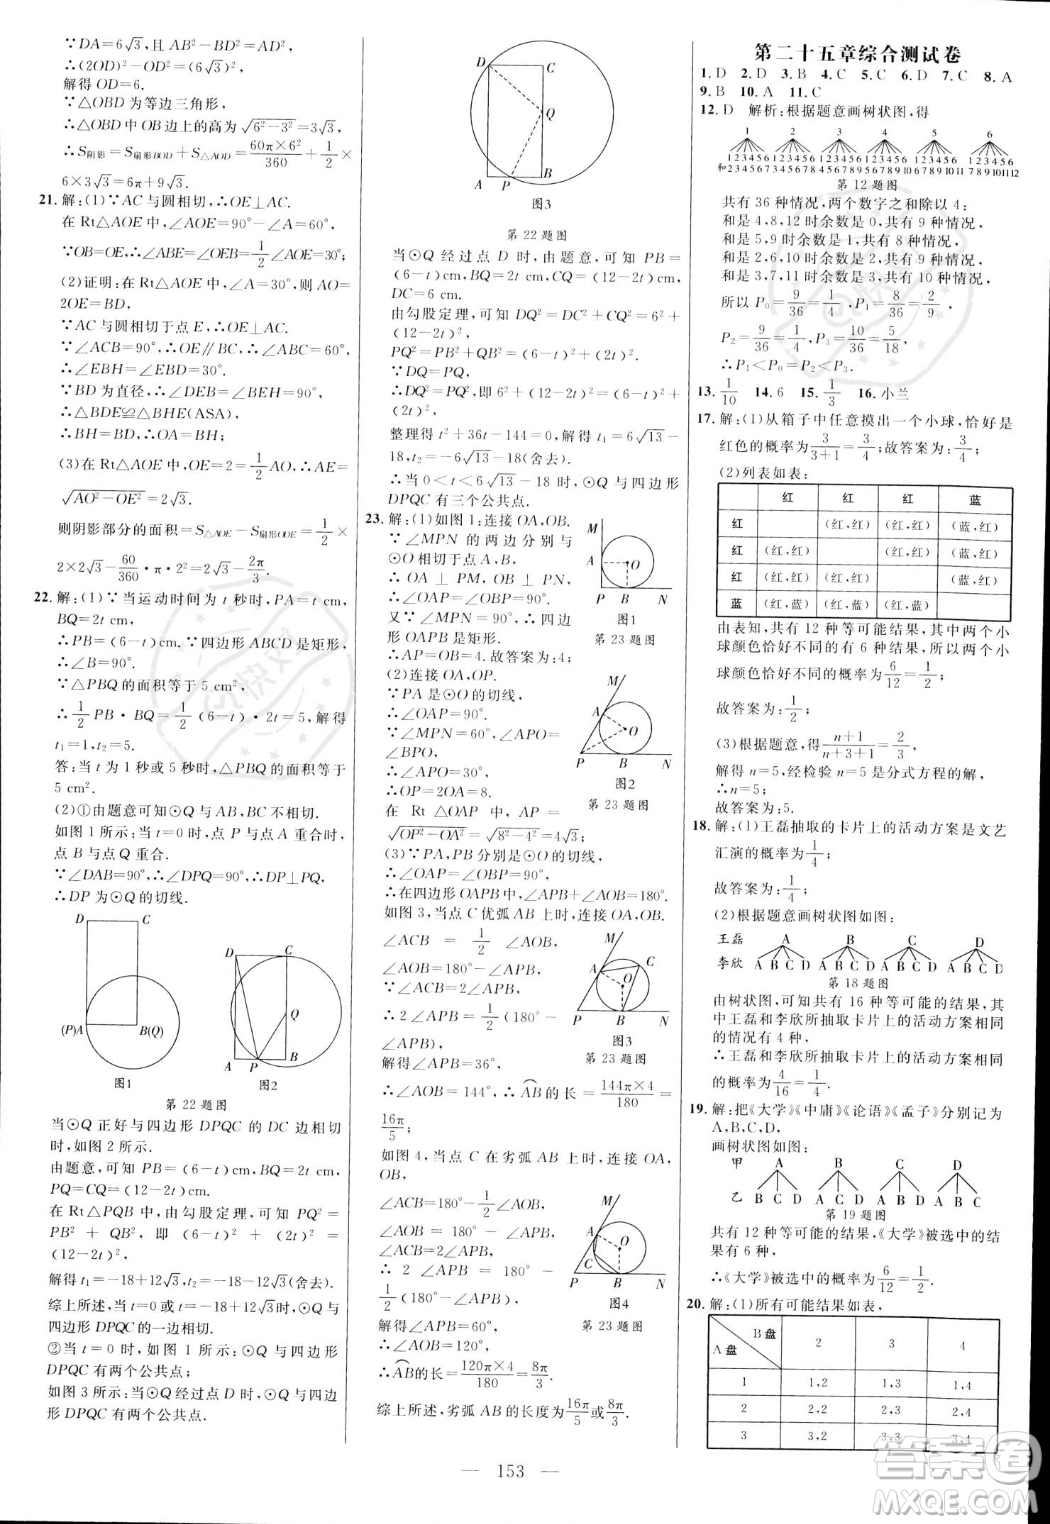 ∵DA=6√3,且 AB²-BD²=AD²,
∴(2OD)²-OD²=(6√3)²,
解得 OD=6.
∵△OBD 为等边三角形,
∴△OBD 中 OB 边上的高为√(6²-3²)=3√3,
∴S阴影=S扇形BOD+S△AOD=60π×6²/360+1/2×
6×3√3=6π+9√3.
21.解:(1)∵AC 与圆相切,∴OE⊥AC.
在 Rt△AOE 中,∠AOE=90°-∠A=60°,
∵OB=OE,∴∠ABE=1/2∠AOE=30°;
(2)证明:在 Rt△AOE 中,∠A=30°,则 AO=
2OE=BD,
∵AC 与圆相切于点 E,∴OE⊥AC.
∵∠ACB=90°,∴OE∥BC,∴∠ABC=60°,
∴∠EBH=∠EBD=30°.
∵BD 为直径,∴∠DEB=∠BEH=90°.
∴△BDE≌△BHE(ASA),
∴BH=BD,∴OA=BH;
(3)在 Rt△AOE 中,OE=2=1/2AO,AE=
√(AO²-OE²)=2√3,
则阴影部分的面积=S△AOE-S扇形ODE=1/2×
2×2√3-60/360·π·2²=2√3-2π/3.
22.解:(1)∵当运动时间为 t 秒时,PA=t cm,
BQ=2t cm,
∴PB=(6-t)cm.∵四边形 ABCD 是矩形,
∴∠B=90°.
∵△PBQ 的面积等于 5 cm²,
∴1/2PB·BQ=1/2(6-t)·2t=5,解得
t₁=1,t₂=5.
答:当 t 为 1 秒或 5 秒时,△PBQ 的面积等于
5 cm²;
(2)①由题意可知⊙Q 与 AB,BC 不相切.
如图 1 所示:当 t=0 时,点 P 与点 A 重合时,
点 B 与点 Q 重合.
∵∠DAB=90°,∴∠DPQ=90°,∴DP⊥PQ,
∴DP 为⊙Q 的切线.
D C
(P)A B(Q)
图1
D C
Q
A P B
图2
第 22 题图
当⊙Q 正好与四边形 DPQC 的 DC 边相切
时,如图 2 所示.
由题意,可知 PB=(6-t)cm,BQ=2t cm,
PQ=CQ=(12-2t)cm.
在 Rt△PQB 中,由勾股定理,可知 PQ²=
PB²+QB²,即(6-t)²+(2t)²=
(12-2t)²,
解得 t₁=-18+12√3,t₂=-18-12√3(舍去).
综上所述,当 t=0 或 t=-18+12√3时,⊙Q 与
四边形 DPQC 的一边相切.
②当 t=0 时,如图 1 所示:⊙Q 与四边形
DPQC 有两个公共点;
如图 3 所示:当⊙Q 经过点 D 时,⊙Q 与四边
形 DPQC 有两个公共点.
D C
Q
A P B
图3
第 22 题图
当⊙Q 经过点 D 时,由题意,可知 PB=
(6-t)cm,BQ=2t cm,CQ=(12-2t)cm,
DC=6 cm.
由勾股定理,可知 DQ²=DC²+CQ²=6²+
(12-2t)²,
PQ²=PB²+QB²=(6-t)²+(2t)².
∵DQ=PQ,
∴DQ²=PQ²,即 6²+(12-2t)²=(6-t)²+
(2t)²
整理得 t²+36t-144=0,解得 t₁=6√13-
18,t₂=-6√13-18(舍去).
∴当 0<t<6√13-18 时,⊙Q 与四边形
DPQC 有三个公共点.
23.解:(1)如图 1:连接 OA,OB.
∵∠MPN 的两边分别与
⊙O 相切于点 A,B,
∴OA⊥PM,OB⊥PN,
∴∠OAP=∠OBP=90°.
又∵∠MPN=90°,∴四边
形 OAPB 是矩形.
∴AP=OA=4.故答案为:4;
M
A O
P B N
图1
第 23 题图
(2)连接 OA,OP.
∵PA 是⊙O 的切线,
∴∠OAP=90°.
∵∠MPN=60°,∠OPA=
∠BPO,
∴∠APO=30°.
∴PO=2OA=8.
在 Rt△OAP 中,AP=
√(OP²-OA²)=√(8²-4²)=4√3;
M
A
O
P B N
图2
第 23 题图
(3)∵PA,PB 分别是⊙O 的切线,
∴∠OAP=∠OBP=90°.
∴在四边形 OAPB 中,∠APB+∠AOB=180°.
如图 3,当点 C 优弧 AB 上时,连接 OA,OB.
∠ACB=1/2∠AOB,
∴∠AOB=180°-∠APB,
∵∠ACB=2∠APB,
∴2∠APB=1/2(180°-
∠APB),
解得∠APB=36°,
∴∠AOB=144°,∴AB的长=144π×4/180=
16π/5;
M
A C
O
P B N
图3
第 23 题图
如图 4,当点 C 在劣弧 AB 上时,连接 OA,
OB,
∠ACB=180°-1/2∠AOB,
∠AOB=180°-∠APB,
∵∠ACB=2∠APB,
∴2∠APB=180°-
1/2(180°-∠APB),
解得∠APB=60°,
∴∠AOB=120°,
∴AB的长=120π×4/180=8π/3.
综上所述,劣弧 AB 的长度为16π/5或8π/3.
M
A
C O
P B N
图4
第 23 题图
第二十五章综合测试卷
1.D 2.D 3.B 4.C 5.C 6.D 7.C 8.A
9.B 10.A 11.C
12.D 解析:根据题意画树状图,得
1 2 3 4 5 6
123456 123456 123456 123456 123456 123456
和234567 345678 456789 5678910 67891011 789101112
第 12 题图
共有 36 种情况,两个数字之和除以 4;
和是 4,8,12 时余数是 0,共有 9 种情况,
和是 5,9 时余数是 1,共有 8 种情况,
和是 2,6,10 时余数是 2,共有 9 种情况,
和是 3,7,11 时余数是 3,共有 10 种情况,
所以 P₀=9/36=1/4,P₁=8/36=2/9,
P₂=9/36=1/4,P₃=10/36=5/18,
∴P₁<P₀=P₂<P₃.
13.1/10 14.6 15.1/3 16.小兰
17.解:(1)从箱子中任意摸出一个小球,恰好是
红色的概率为3/(3+1)=3/4;故答案为:3/4;
(2)列表如表:
红 红 红 蓝
红 (红,红) (红,红) (蓝,红)
红 (红,红) (红,红) (蓝,红)
红 (红,红) (红,红) (蓝,红)
蓝 (红,蓝) (红,蓝) (红,蓝)
由表知,共有 12 种等可能结果,其中两个小
球颜色恰好不同的有 6 种结果,所以两个小
球颜色恰好不同的概率为6/12=1/2,
故答案为:1/2;
(3)根据题意,得(n+1)/(n+3+1)=2/3,
解得 n=5,经检验 n=5 是分式方程的解,
∴n=5;
故答案为:5.
18.解:(1)王磊抽取的卡片上的活动方案是文艺
汇演的概率为1/4;
故答案为:1/4;
(2)根据题意画树状图如图:
王磊 A B C D
李欣 A B C D A B C D A B C D A B C D
第 18 题图
由树状图,可知共有 16 种等可能的结果,其
中王磊和李欣所抽取卡片上的活动方案相同
的情况有 4 种,
∴王磊和李欣所抽取卡片上的活动方案相同
的概率为4/16=1/4.
19.解:把《大学》《中庸》《论语》《孟子》分别记为
A,B,C,D,
画树状图如图:
甲 A B C D
乙 B C D A C D A B D A B C
第 19 题图
共有 12 种等可能的结果,《大学》被选中的结
果有 6 种,
∴《大学》被选中的概率为6/12=1/2.
20.解:(1)所有可能结果如表,
B盘 A盘 2 3 4
1 1,2 1,3 1,4
2 2,2 2,3 2,4
3 3,2 3,3 3,4
— 153 —
答案圈
MXQE.COM